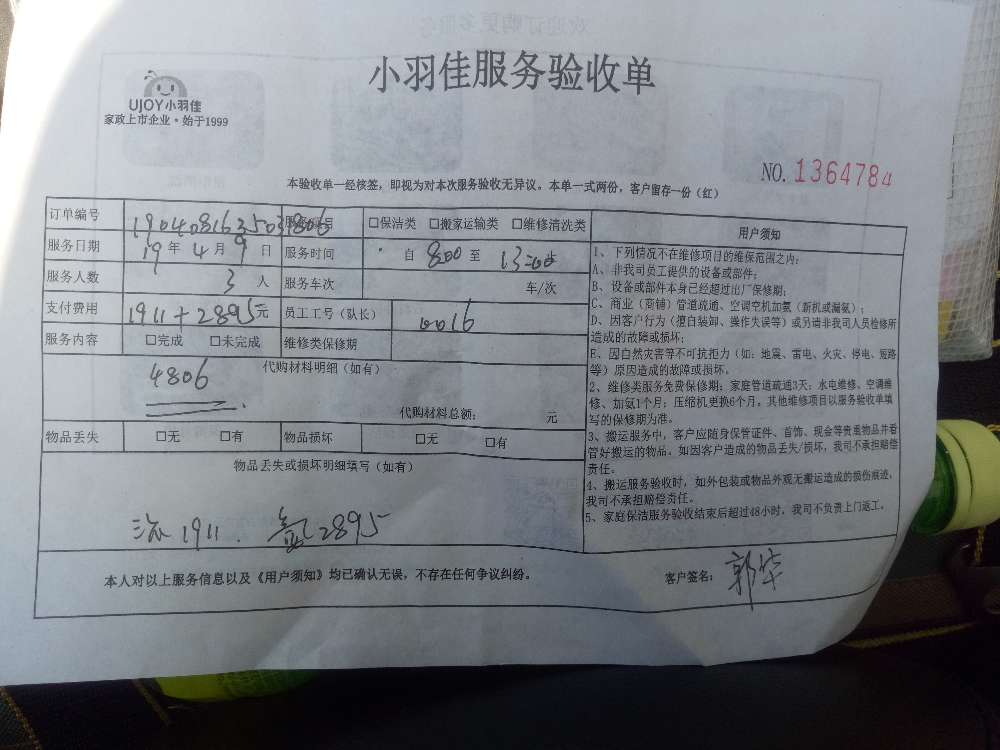 小羽佳服务验收单
UJOY小羽佳
家政上市企业·始于1999
NO. 1364784
本验收单一经核签，即视为对本次服务验收无异议。本单一式两份，客户留存一份（红）
订单编号 服务项目 □保洁类 □搬家运输类 □维修清洗类
服务日期 19年4月9日 服务时间 自 800 至 13:00
服务人数 3人 服务车次 车/次
支付费用 1911+2895元 员工工号（队长） 0016
服务内容 □完成 □未完成 维修类保修期
代购材料明细（如有）
4806
代购材料总额： 元
物品丢失 □无 □有 物品损坏 □无 □有
物品丢失或损坏明细填写（如有）
1911. 2895
用户须知
1、下列情况不在维修项目的维保范围之内：
A、非我司员工提供的设备或部件；
B、设备或部件本身已经超过出厂保修期；
C、商业（商铺）管道疏通、空调空机加氨（新机或漏氨）；
D、因客户行为（擅自装卸、操作失误等）或另请非我司人员检修所
造成的故障或损坏；
E、因自然灾害等不可抗拒力（如：地震、雷电、火灾、停电、短路
等）原因造成的故障或损坏。
2、维修类服务免费保修期：家庭管道疏通3天；水电维修、空调维
修、加氨1个月；压缩机更换6个月，其他维修项目以服务验收单填
写的保修期为准。
3、搬运服务中，客户应随身保管证件、首饰、现金等贵重物品并看
管好搬运的物品。如因客户造成的物品丢失/损坏，我司不承担赔偿
责任。
4、搬运服务验收时，如外包装或物品外观无搬运造成的损伤痕迹，
我司不承担赔偿责任。
5、家庭保洁服务验收结束后超过48小时，我司不负责上门返工。
本人对以上服务信息以及《用户须知》均已确认无误，不存在任何争议纠纷。
客户签名： 郭华